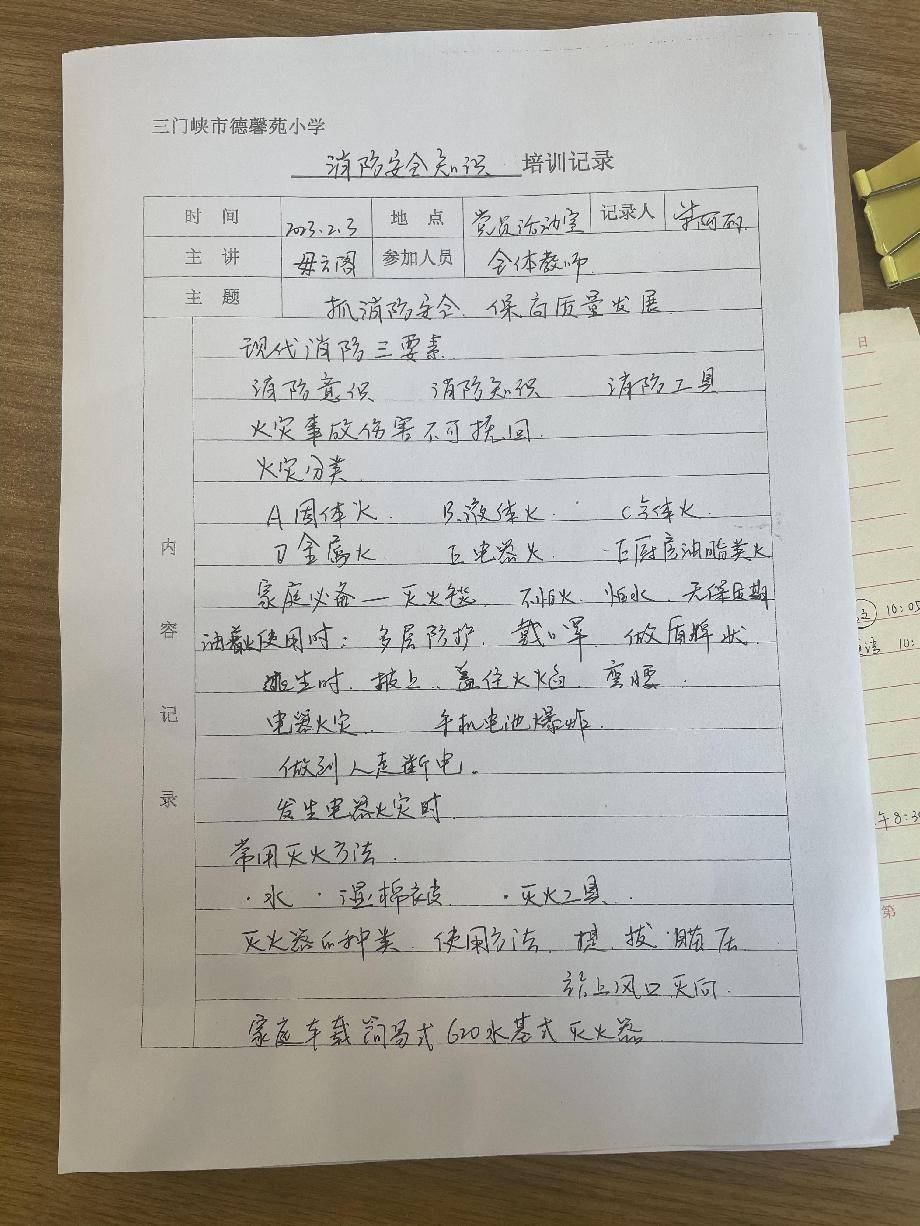 三门峡市德馨苑小学
消防安全知识 培训记录
时 间 2023.2.3 地 点 党员活动室 记录人
主 讲 毋云阁 参加人员 全体教师
主 题 抓消防安全、保高质量发展
内容记录
现代消防三要素
消防意识 消防知识 消防工具
火灾事故伤害不可挽回.
火灾分类
A固体火. B.液体火. C气体火.
D金属火 E电器火 F厨房油脂类火
家庭必备—灭火毯. 不怕火. 怕水. 无保质期
使用时: 多层防护. 戴口罩. 做盾牌状.
逃生时. 披上. 盖住火焰. 弯腰.
电器火灾. 手机电池爆炸.
做到人走断电。
发生电器火灾时
常用灭火方法.
·水 ·湿棉衣皮 ·灭火工具.
灭火器的种类. 使用方法. 提. 拔. 瞄. 压
站上风口灭向.
家庭车载简易式620水基式灭火器
日
10:05
10:
午8:30
第